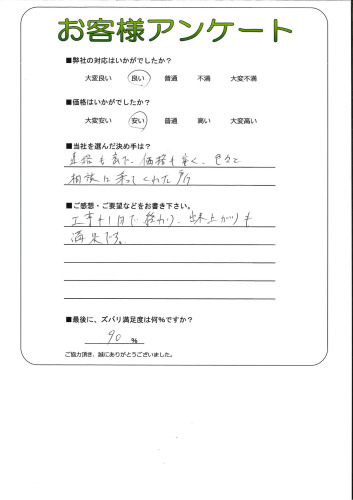 お客様アンケート
■弊社の対応はいかがでしたか?
大変良い 良い 普通 不満 大変不満
■価格はいかがでしたか?
大変安い 安い 普通 高い 大変高い
■当社を選んだ決め手は?
価格も安く、色々と
相談に乗ってくれた所
■ご感想・ご要望などをお書き下さい。
工事も1日で終わり、出来上がりも
満足です。
■最後に、ズバリ満足度は何%ですか?
90 %
ご協力頂き、誠にありがとうございました。